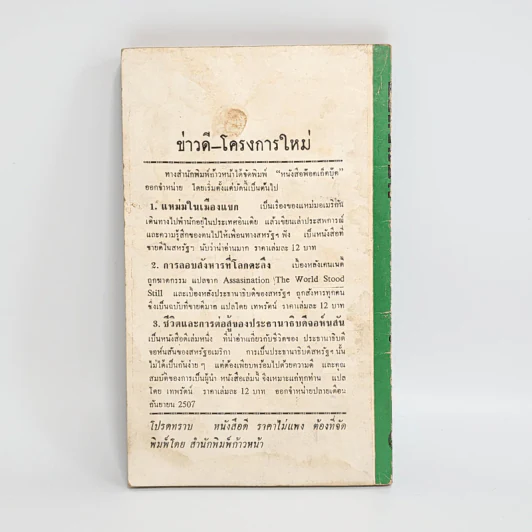 ข่าวดี–โครงการใหม่
ทางสำนักพิมพ์ก้าวหน้าได้จัดพิมพ์ "หนังสือพ๊อคเก็ตบุ๊ค"
ออกจำหน่าย โดยเริ่มตั้งแต่บัดนี้เป็นต้นไป
1. แหม่มในเมืองแขก เป็นเรื่องของแหม่มอเมริกัน
เดินทางไปพำนักอยู่ในประเทศอินเดีย แล้วเขียนเล่าประสพการณ์
และความรู้สึกของตนไปให้เพื่อนทางสหรัฐฯ ฟัง เป็นหนังสือที่
ขายดีในสหรัฐฯ นับว่าน่าอ่านมาก ราคาเล่มละ 12 บาท
2. การลอบสังหารที่โลกตะลึง เบื้องหลังเคนเนดี
ถูกฆาตกรรม แปลจาก Assasination The World Stood
Still และเบื้องหลังประธานาธิบดีของสหรัฐฯ ถูกสังหารทุกคน
ซึ่งเป็นฉบับที่ขายดีมาก แปลโดย เทพรัตน์ ราคาเล่มละ 12 บาท
3. ชีวิตและการต่อสู้ของประธานาธิบดีจอห์นสัน
เป็นหนังสือดีเล่มหนึ่ง ที่น่าอ่านเกี่ยวกับชีวิตของ ประธานาธิบดี
จอห์นสันของสหรัฐอเมริกา การเป็นประธานาธิบดีสหรัฐฯ นั้น
ไม่ได้เป็นกันง่าย ๆ แต่ต้องเพียบพร้อมไปด้วยความดี และคุณ
สมบัติของการเป็นผู้นำ หนังสือเล่มนี้ จึงเหมาะแก่ทุกท่าน แปล
โดย เทพรัตน์ ราคาเล่มละ 12 บาท ออกจำหน่ายปลายเดือน
กันยายน 2507
โปรดทราบ หนังสือดี ราคาไม่แพง ต้องที่จัด
พิมพ์โดย สำนักพิมพ์ก้าวหน้า